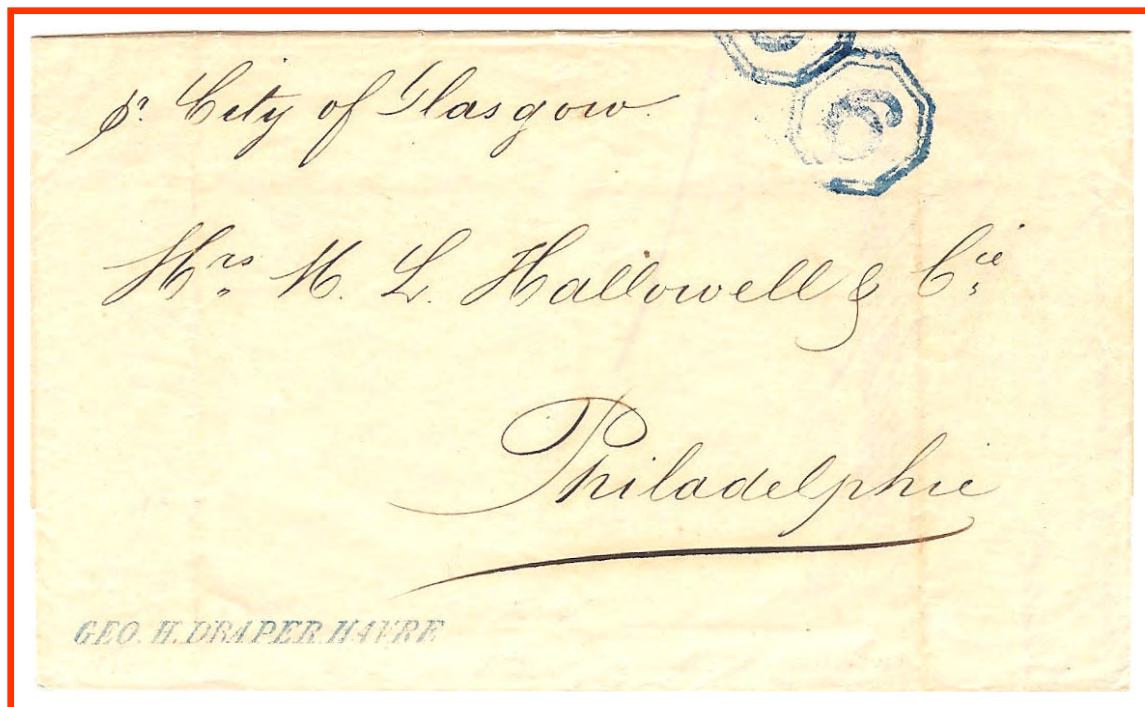 pr. City of Glasgow
6
Mrs M. L. Hallowell & Cie
Philadelphie
GEO. H. DRAPER HAVRE